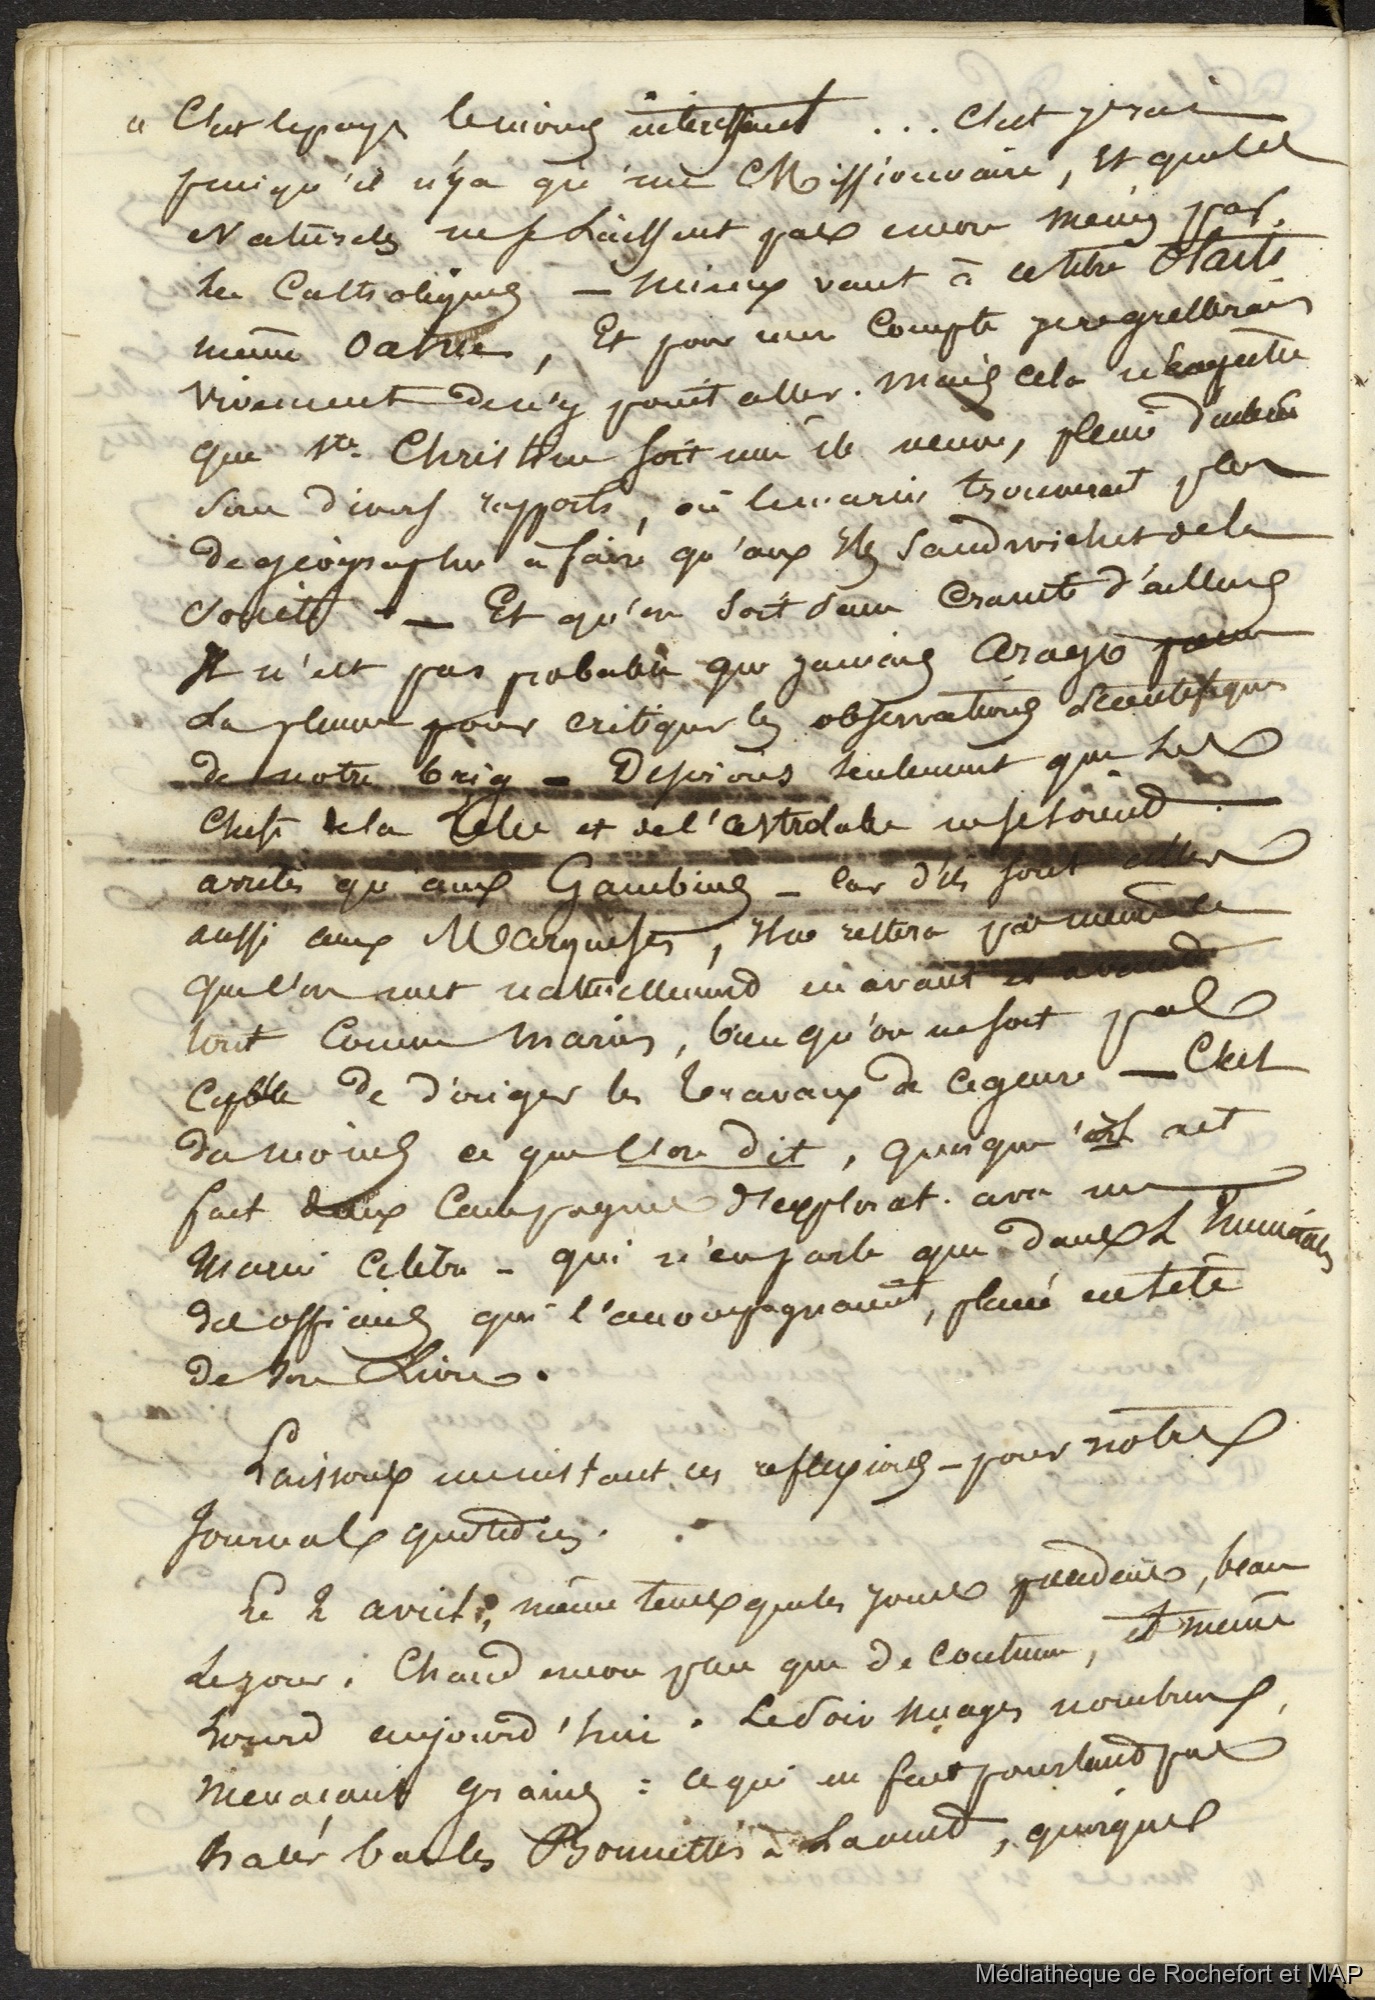 « C'est le pays le moins intéressant ... c'est vrai
puisqu'il n'y a qu'un Missionnaire, et que les
Naturels ne se laissent pas encore mener par
les Catholiques — Mieux vaut à ce titre O Taïti
même , Et pour mon Compte je regretterais
vivement de n'y point aller. Mais cela n'empêche
que Ste Christine soit une île neuve, pleine d'intérêt
sous divers rapports, où le marin trouverait plus
de géographie à faire qu'aux Iles Sandwiches et de la
Société — Et qu'on soit sans crainte d'ailleurs
Il n'est pas probable que jamais Arago
la plume pour critiquer les observations scientifiques
de notre brig — Désirons seulement que les
Chefs de la Zélée et de l'Astrolabe ne se soient
arrêtés qu'aux Gambiers — Car s'ils sont allés
aussi aux Marquises, il ne restera pas
que l'on met naturellement en avant
tout comme marins, bien qu'on ne soit pas
de diriger les travaux de ce genre — C'est
du moins ce que l'on dit, quoique ait
fait deux Campagnes d'explorat. avec un
Marin célèbre — qui n'en parle que dans
des officiers qui l'accompagnaient, placé en tête
de son Livre.
Laissons un instant ces réflexions — pour notre
Journal quotidien.
Le 2 avril, même temps que les jours précédents, beau
le jour ; Chaud encore plus que de coutume, et même
lourd aujourd'hui . Le soir nuages nombreux,
menaçant grains : ce qui ne fait pourtant pas
haler bas les Bonnettes , quoique